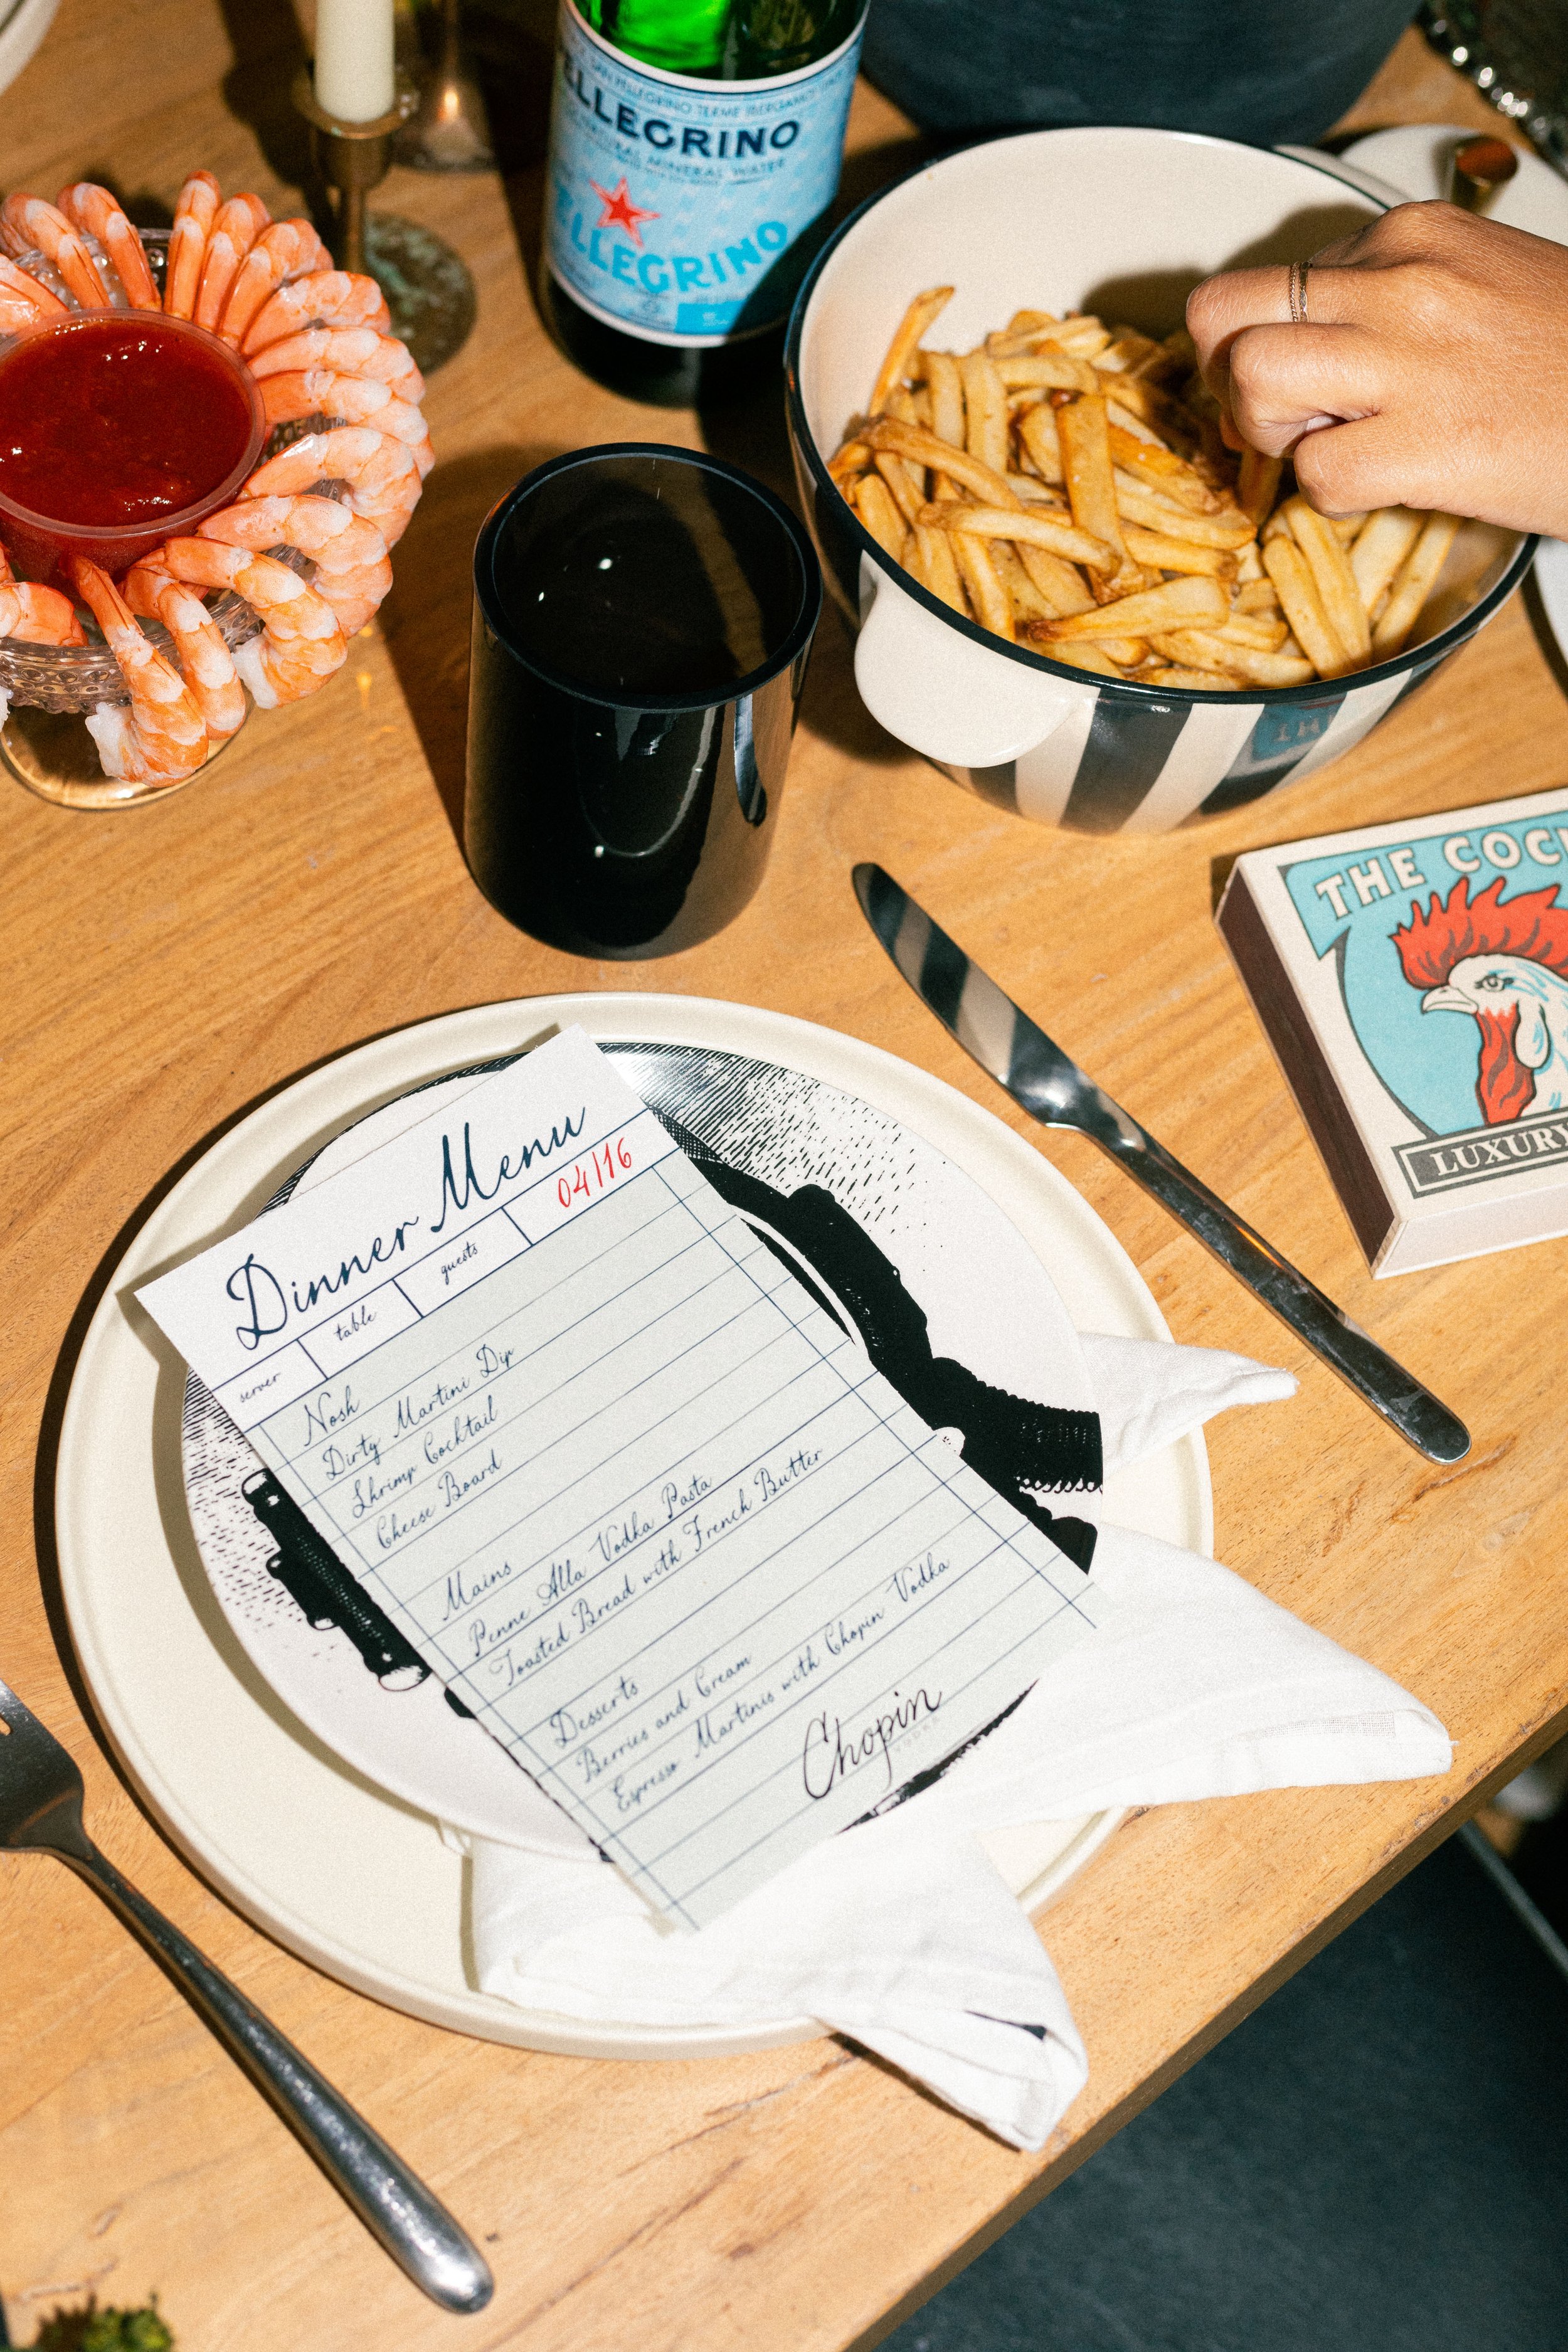 SAN PELLEGRINO TERME (BERGAMO)
ELLEGRINO
NATURAL MINERAL WATER
ELLEGRINO
THE COC
LUXURY
Dinner Menu
server table guests 04/16
Nosh
Dirty Martini Dip
Shrimp Cocktail
Cheese Board
Mains
Penne Alla Vodka Pasta
Toasted Bread with French Butter
Desserts
Berries and Cream
Espresso Martinis with Chopin Vodka
Chopin
VODKA